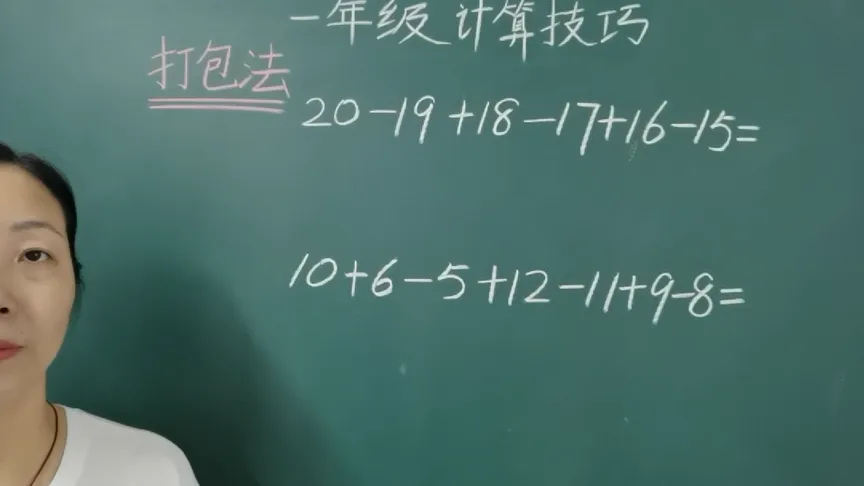 一年级 计算技巧
打包法
20-19+18-17+16-15=
10+6-5+12-11+9-8=